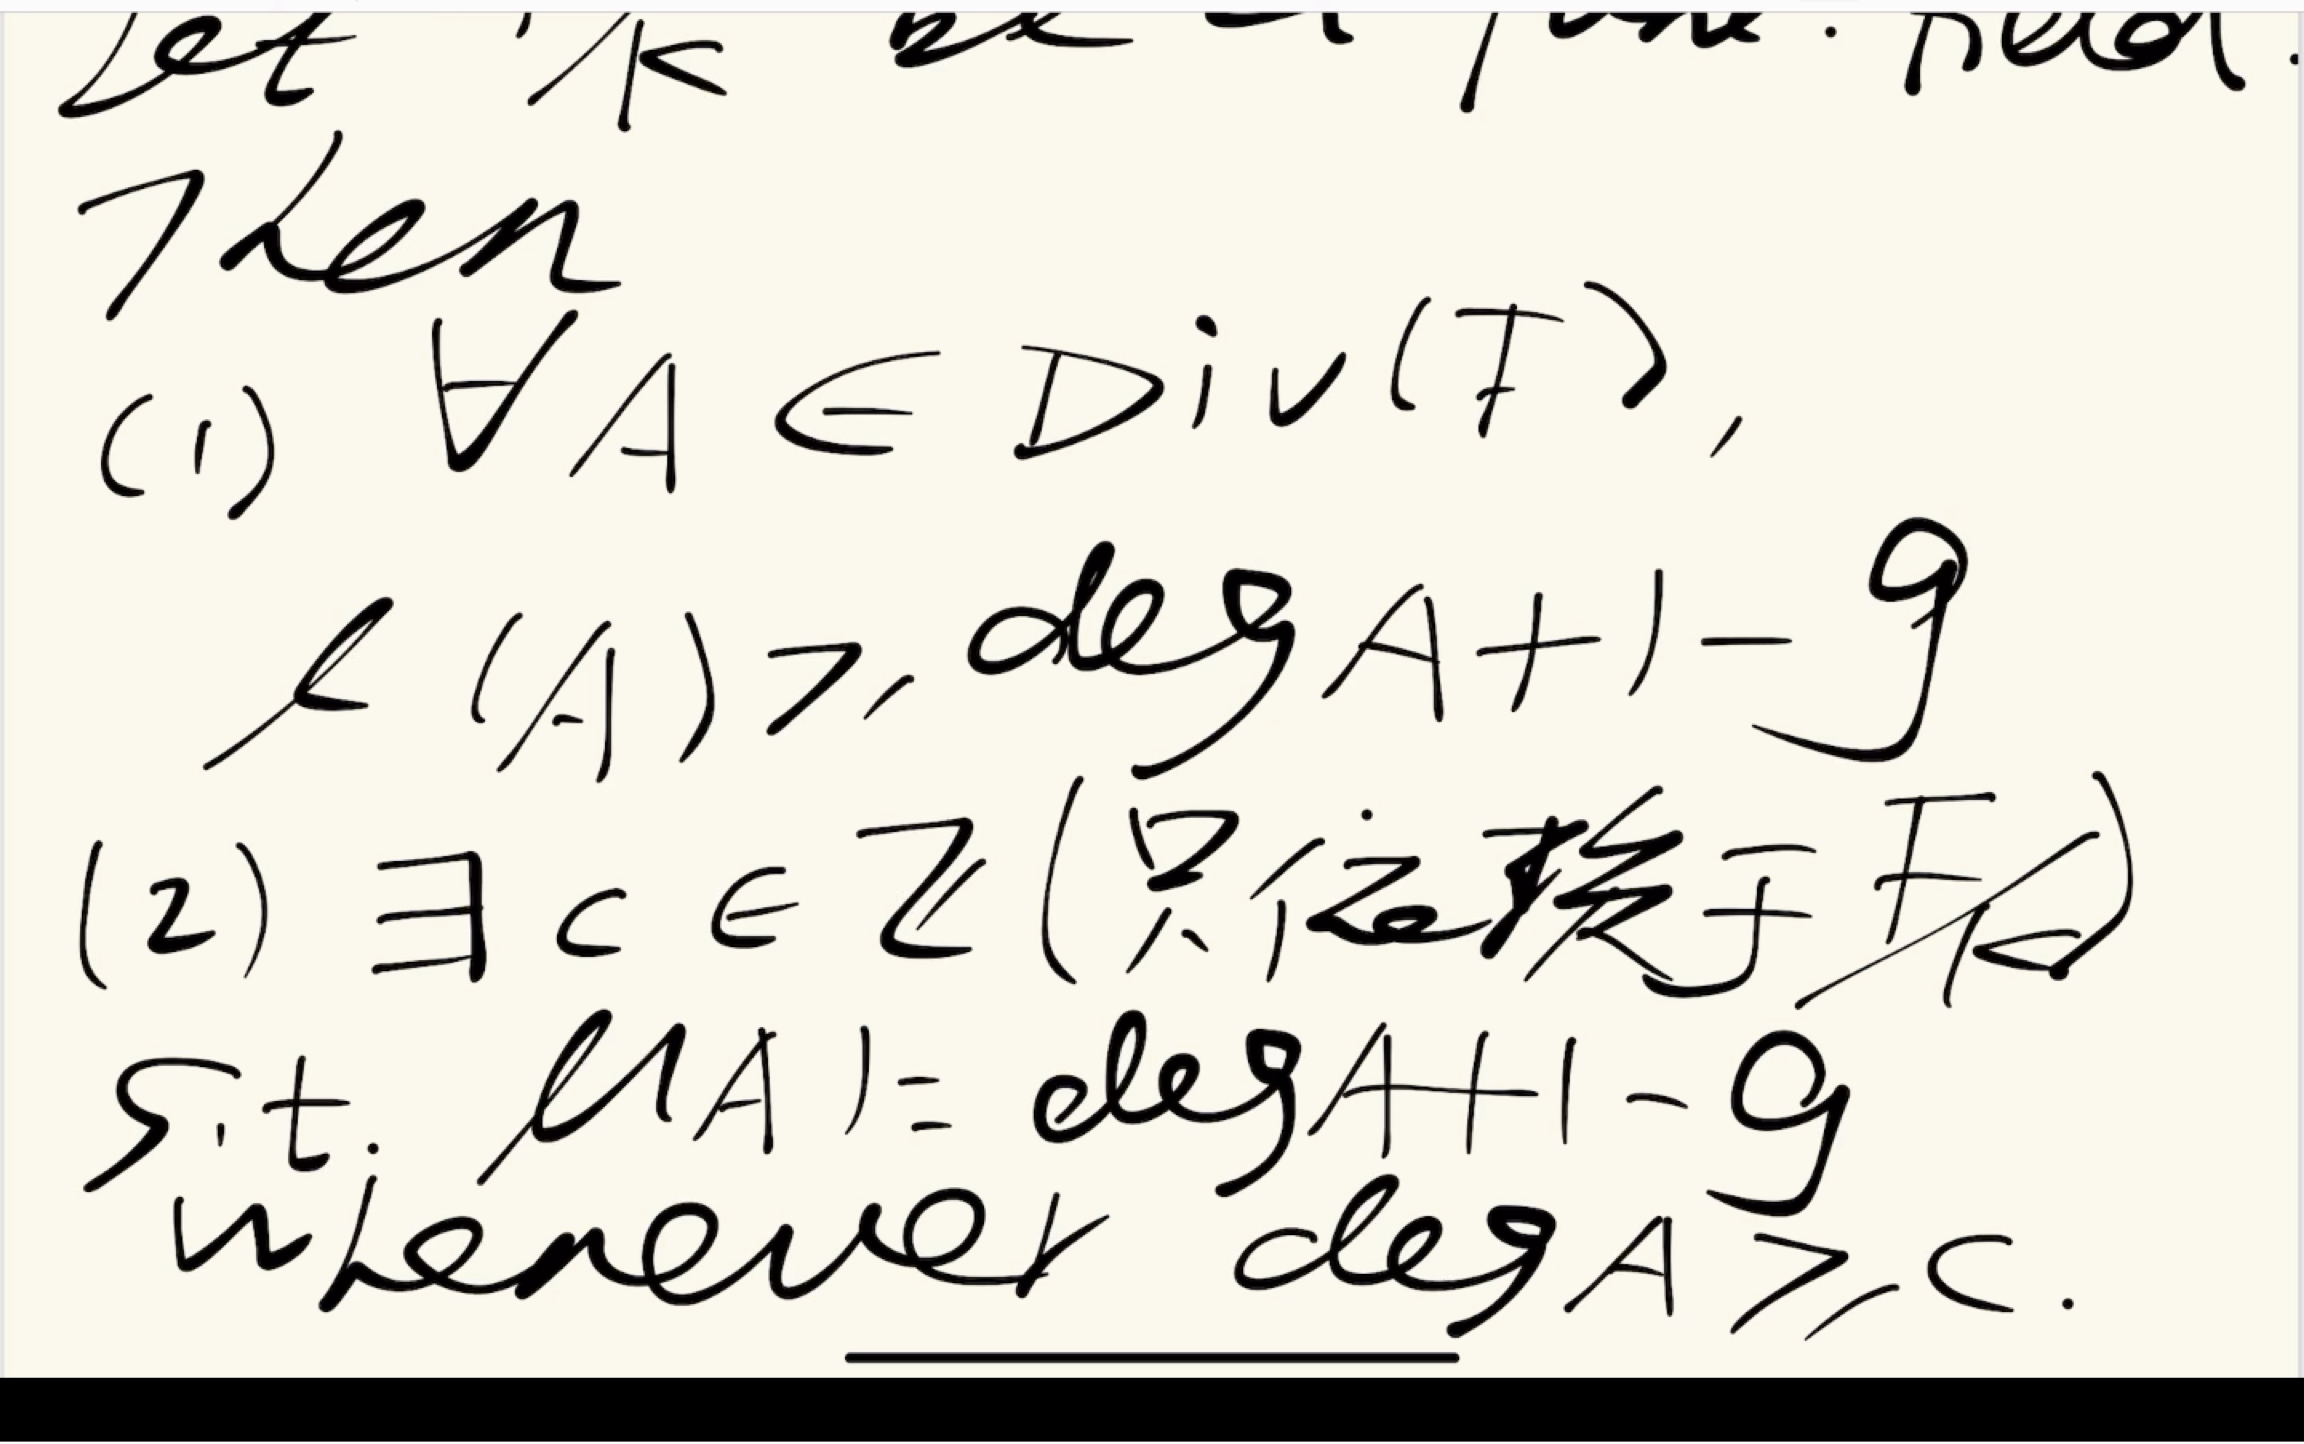 Let F/K be a func. field.
Then
(1) ∀ A ∈ Div(F),
ℓ(A) ≥ deg A + 1 - g
(2) ∃ c ∈ ℤ (只依赖于 F/K)
s.t. ℓ(A) = deg A + 1 - g
whenever deg A ≥ c.